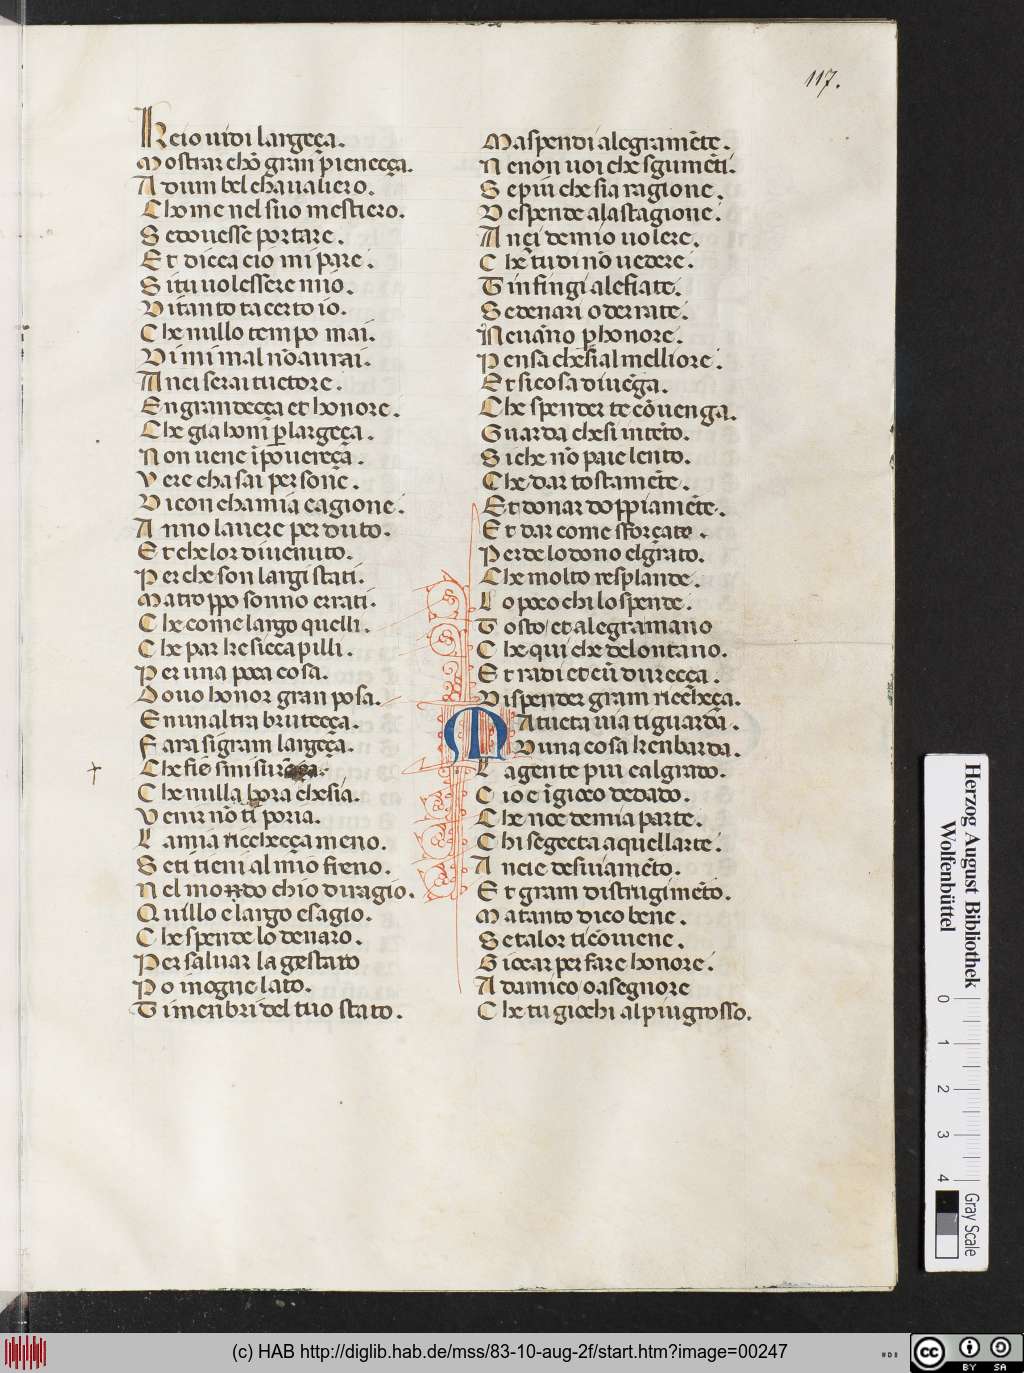 117.
Keio uidi largeça.
Mostrar chõ gran pieneçça.
A dum bel chaualiero.
Chome nel suo mestiero.
Se douesse portare.
Et dicea cio mi pare.
Si tu uolessere mio.
Di tanto tacerto io.
Che nullo tempo mai.
Di mi mal nõ aurai.
Anci serai tuctore.
En grandecça et honore.
Che gia homĩ p largeça.
Non uene ĩpouereçã.
Vere cha sai persone.
Dicon cha mia cagione.
Anno lauere perduto.
Et che lor diuenuto.
Per che son largi stati.
Ma troppo sonno errati.
Che come largo quelli.
Che par ke sicca pilli.
Per una poca cosa.
Douo honor gran posa.
En unaltra brutecça.
Fara si gram largeça.
Che fiẽ smisurãça.
Che nulla hora che sia.
Venir nõ ti poria.
La mia richecça meno.
Se ti tieni al mio freno.
Nel mondo chio diragio.
Quillo e largo e sagio.
Che spende lo denaro.
Per saluar la gestaro
Po mogne lato.
Timenbri del tuo stato.
Ma spendi alegramẽte.
Ne non uoi che sgumẽti.
Se piu che sia ragione.
Despende ala stagione.
Anci demio uolere.
Che tu di nõ uedere.
Tinfingi ale fiate.
Se denari o derrate.
Ne uãno p honore.
Pensa che sia l melliore.
Et si cosa diuẽga.
Che spender te cõuenga.
Guarda che si intẽto.
Si che nõ paie lento.
Che dar tostamẽte.
Et donar doppiamẽte.
Et dar come sforçato.
Perde lo dono el grato.
Che molto resplande.
Lo poco chi lo spende.
Tosto et alegra mano
Che qui che de lontano.
Et radi et cũ durecça.
Dispender gram richeça.
Ma tucta uia ti guarda.
Duna cosa ken barda.
La gente piu cal grado.
Cio e ĩ gioco de dado.
Che noe de mia parte.
Chi se gecta a quellarte.
Anci e desuiamẽto.
Et gram distrugimẽto.
Ma tanto dico bene.
Se talor ti cõuiene.
Giocar per fare honore.
Ad amico o a segnore
Che tu giochi al piu grosso.
Herzog August Bibliothek
Wolfenbüttel
0 1 2 3 4
Gray Scale
(c) HAB http://diglib.hab.de/mss/83-10-aug-2f/start.htm?image=00247
cc BY SA